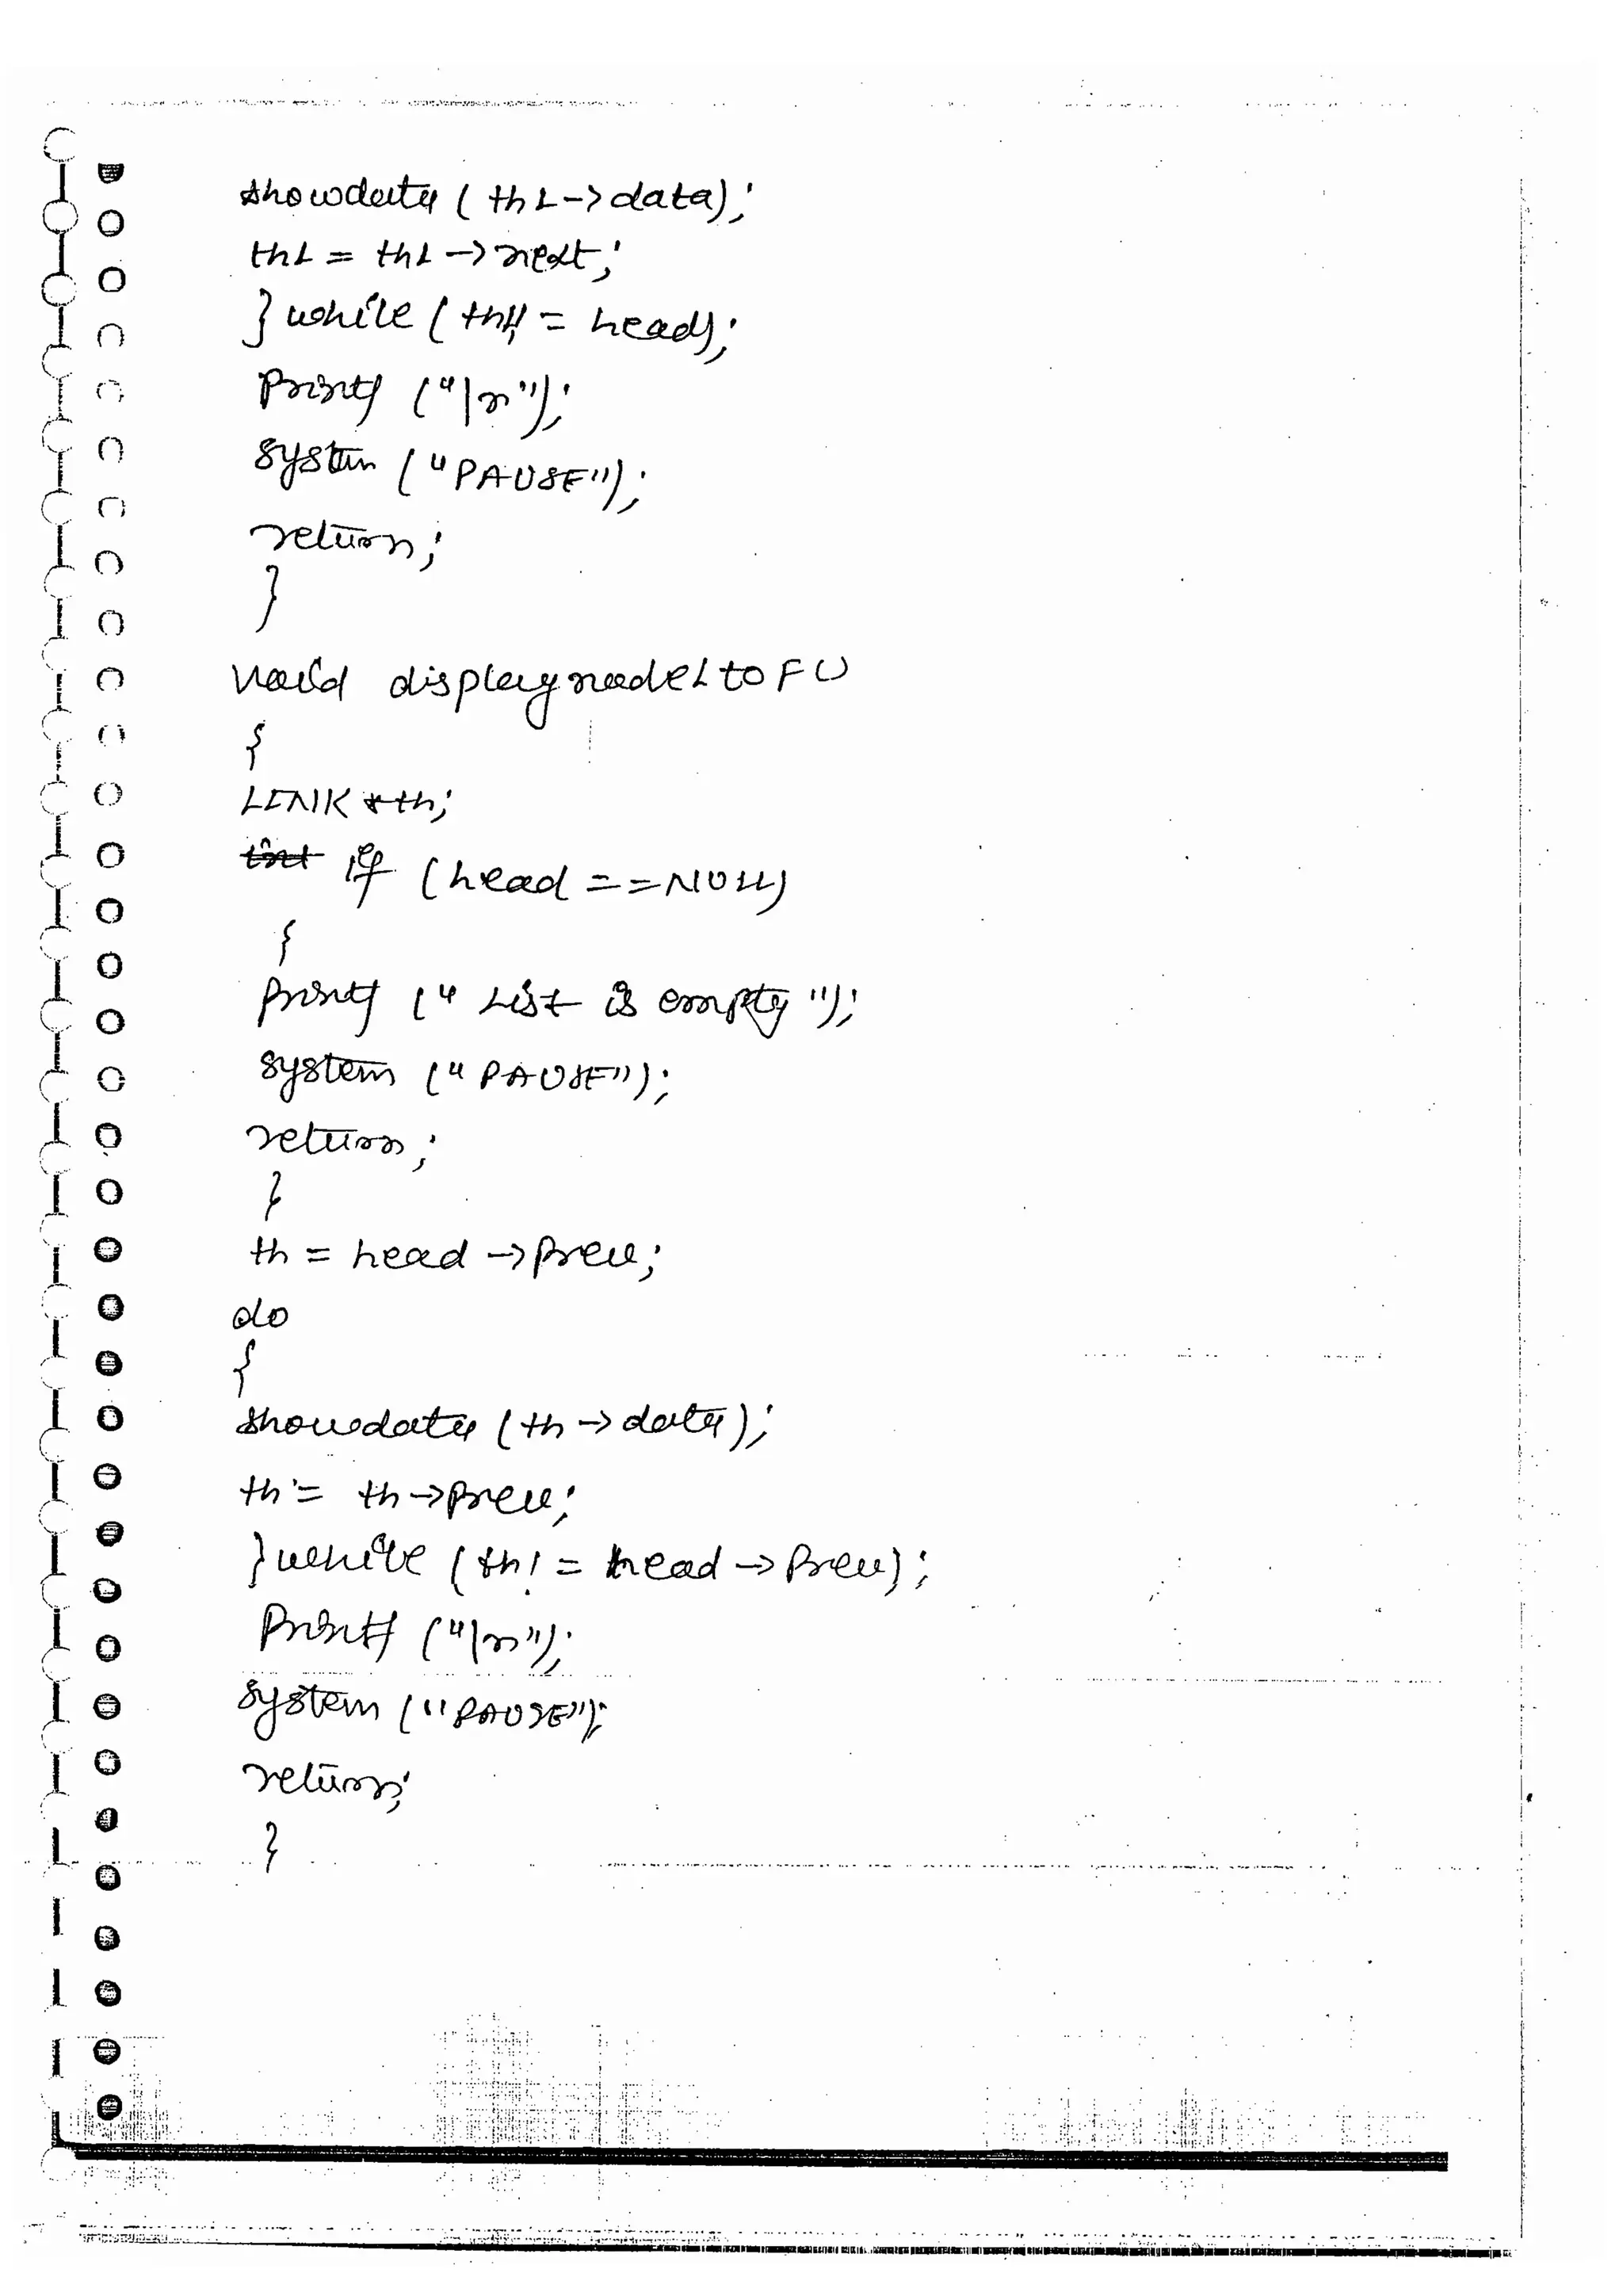 showdata ( th1->data);
th1 = th1 -> next;
} while ( th1! = head);
Printf ("\n");
System ("PAUSE");
return;
}
Void displaynodeLtoF()
{
LINK *th;
int if (head ==NULL)
{
printf (" List is empty ");
system ("PAUSE");
return;
}
th = head -> prev;
do
{
showdata (th -> data);
th = th->prev;
} while (th! = head -> prev);
Printf ("\n");
system ("PAUSE");
return;
}